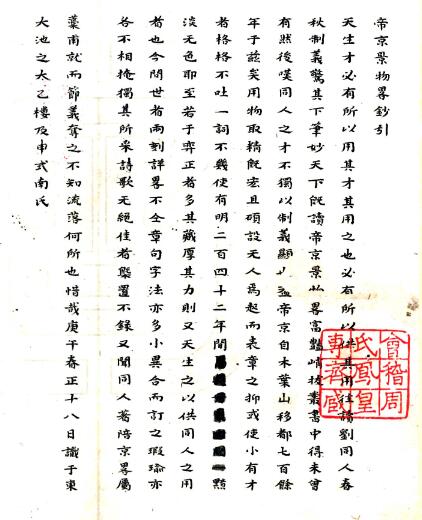 帝京景物畧鈔引
天生才必有所以用其才其用之也必有所以供其用往讀劉同人春
秋制義驚其下筆妙天下旣讀帝京景物畧富豔峭拔叢書中得未曾
有然後嘆同人之才不獨以制義顯也盖帝京自木葉山移都七百餘
年于茲矣用物取精旣宏且碩設无人爲起而表章之抑或使小有才
者格格不吐一詞不幾使有明二百四十二年間黯
淡无色耶至若于弈正者多其藏厚其力則又天生之以供同人之用
者也今閱世者兩刻詳畧不仝章句字法亦多小異合而訂之瑕瑜亦
各不相掩獨其所采詩歌无絕佳者槩置不錄又聞同人著陪京畧屬
藁甫就而節義奪之不知流落何所也惜哉庚午春正十八日識于東
大池之太乙樓及申式南氏
會稽周
氏鳳皇
專齋藏